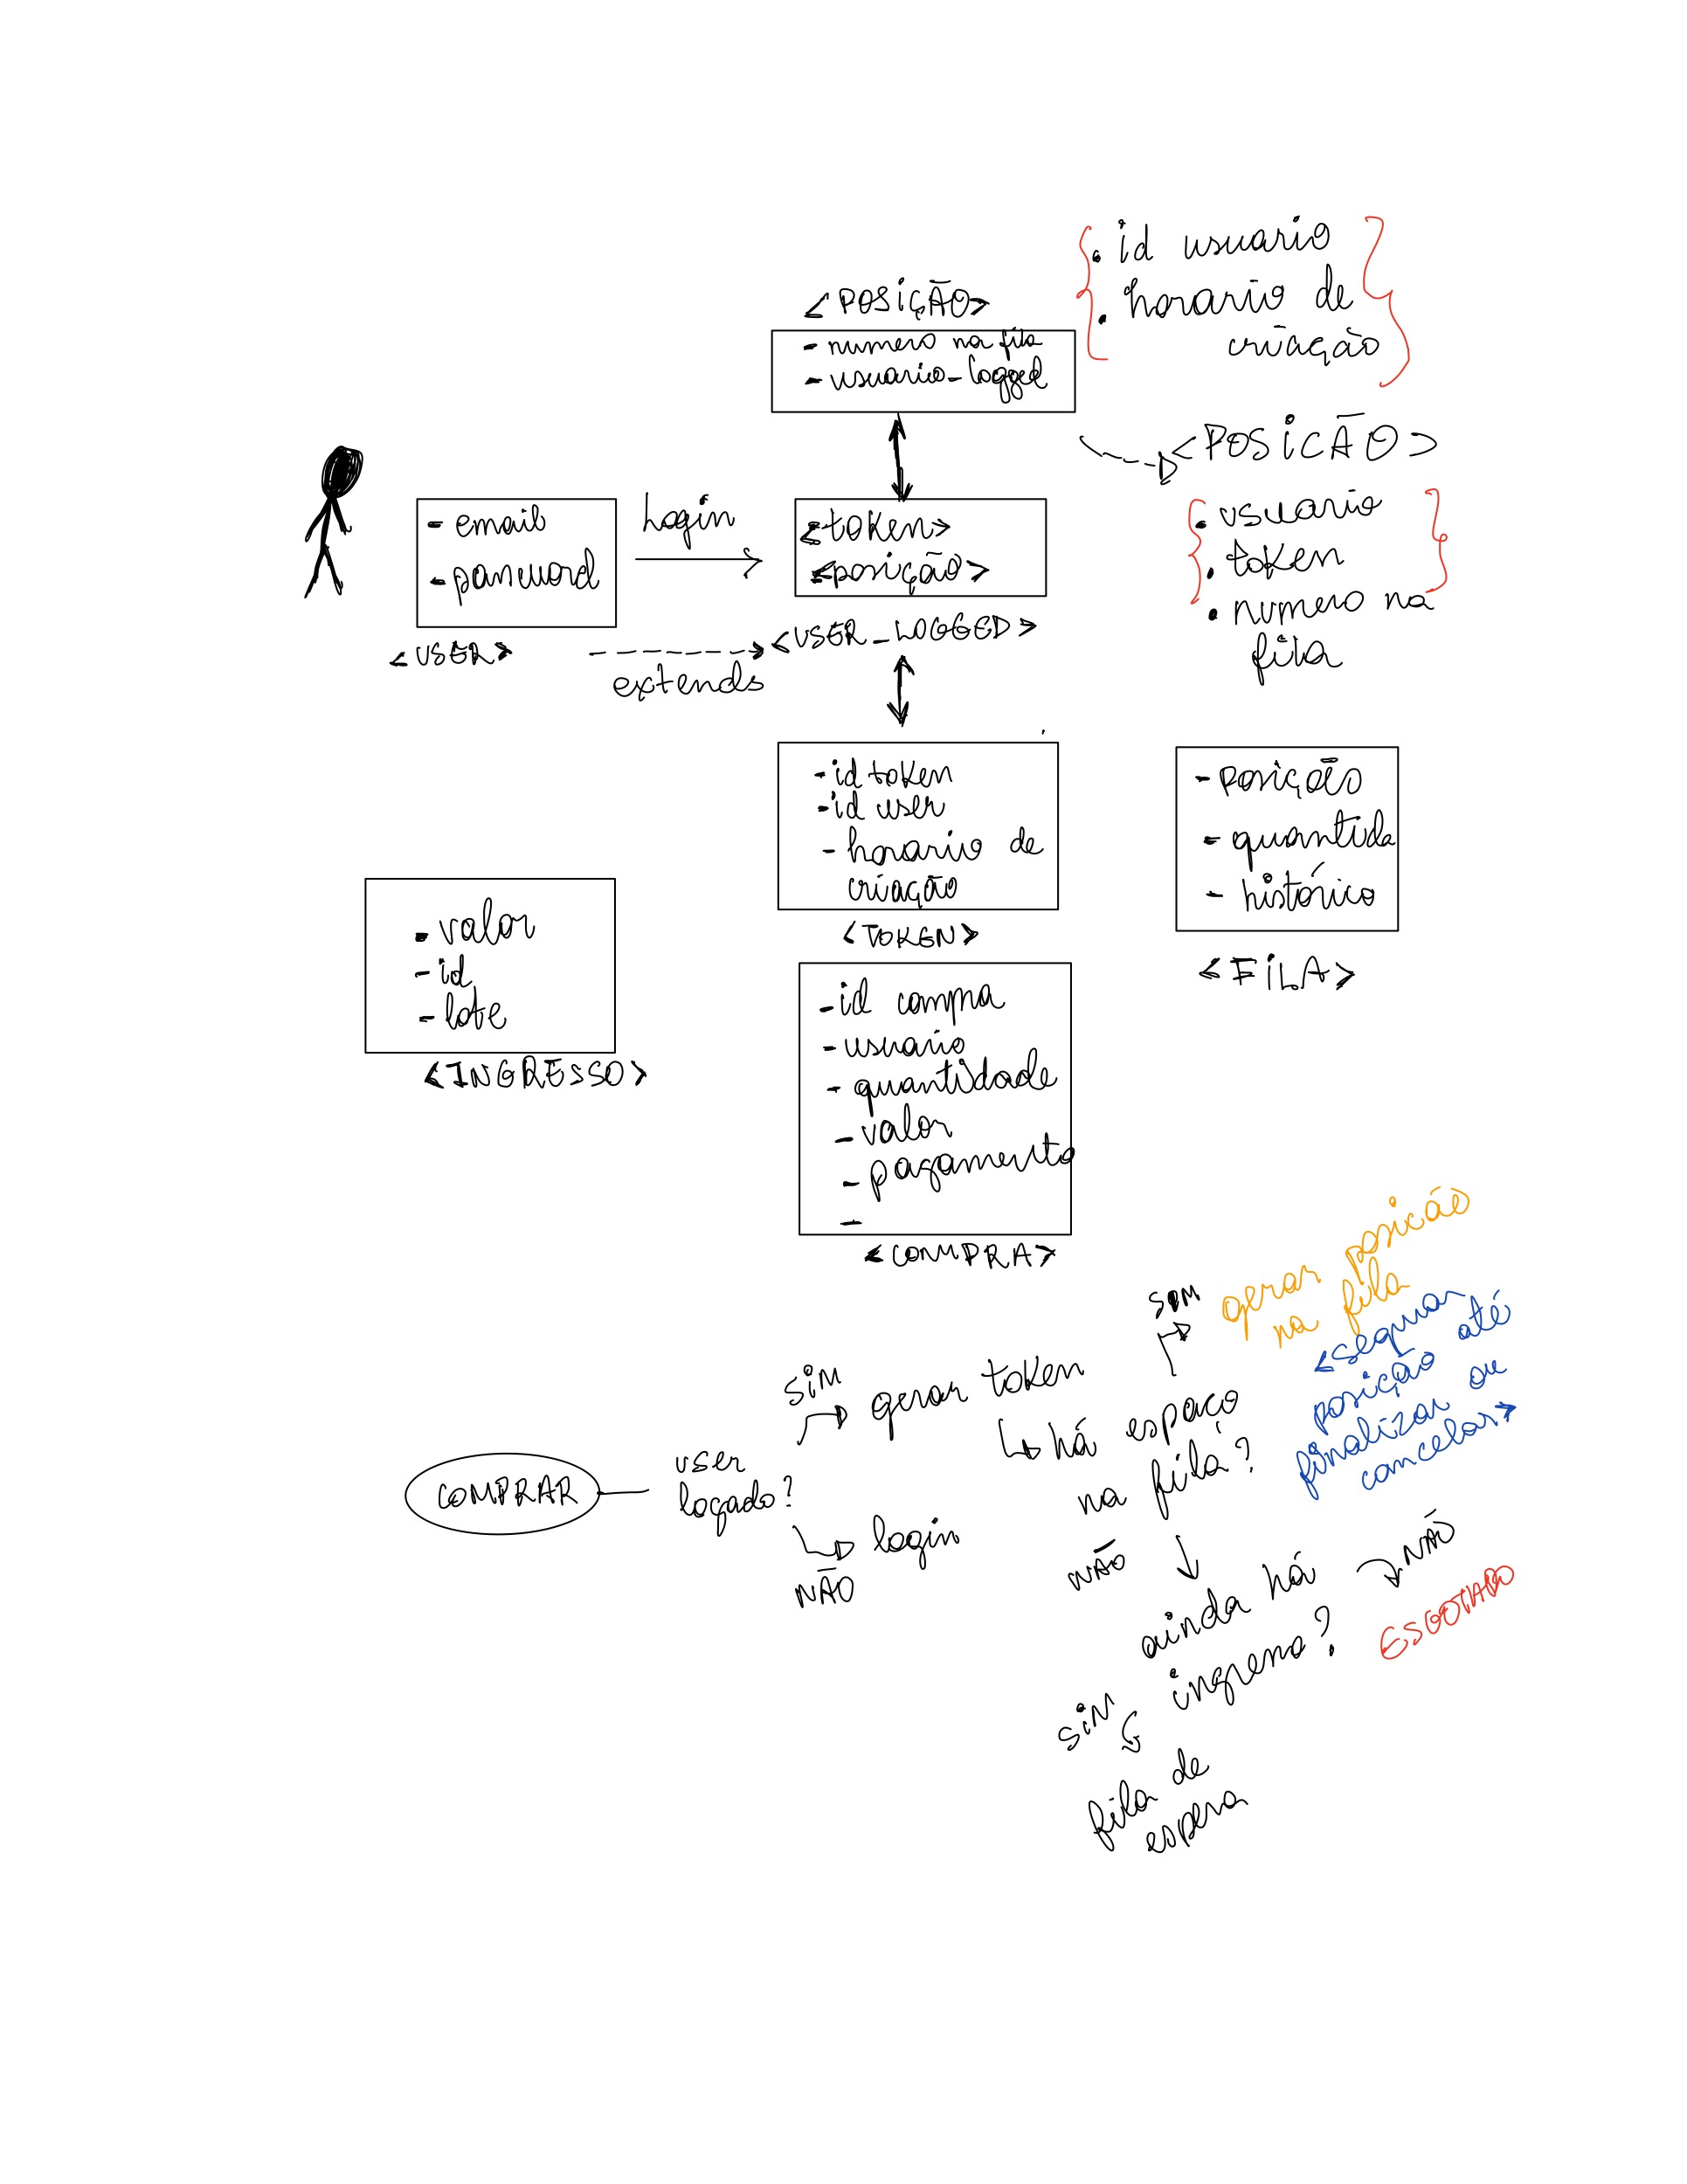 . id usuario
. horario de
criação
<POSIÇÃO>
- numero na fila
- usuario_logged
<POSICÃO>
. usuario
. token
. numero na
fila
- email
- password
<USER>
Login
extends
<token>
<posição>
<USER_LOGGED>
- id token
- id user
- horario de
criação
<TOKEN>
- posição
- quantida
- histórico
<FILA>
- valor
- id
- lote
<INGRESSO>
- id compra
- usuario
- quantidade
- valor
- pagamento
-
<COMPRA>
COMPRAR
user
logado?
SIM
gerar token
NÃO
login
há espaço
na fila?
SIM
gerar posicão
na fila
<segurar
posição até
finalizar ou
cancelar>
NÃO
ainda há
ingresso?
NÃO
ESGOTADO
SIM
fila de
espera